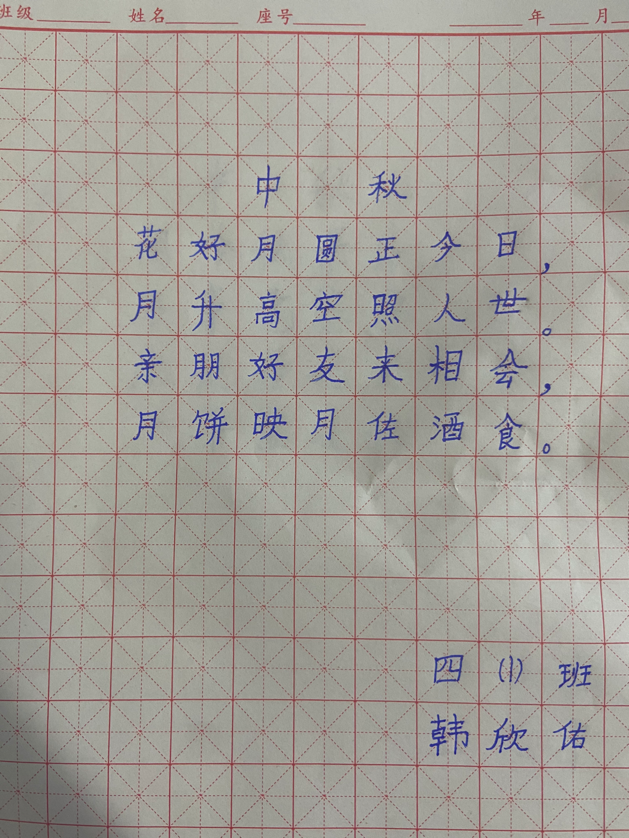 班级 姓名 座号 年 月
中秋
花好月圆正今日，
月升高空照人世。
亲朋好友来相会，
月饼映月佐酒食。
四（1）班
韩欣佑